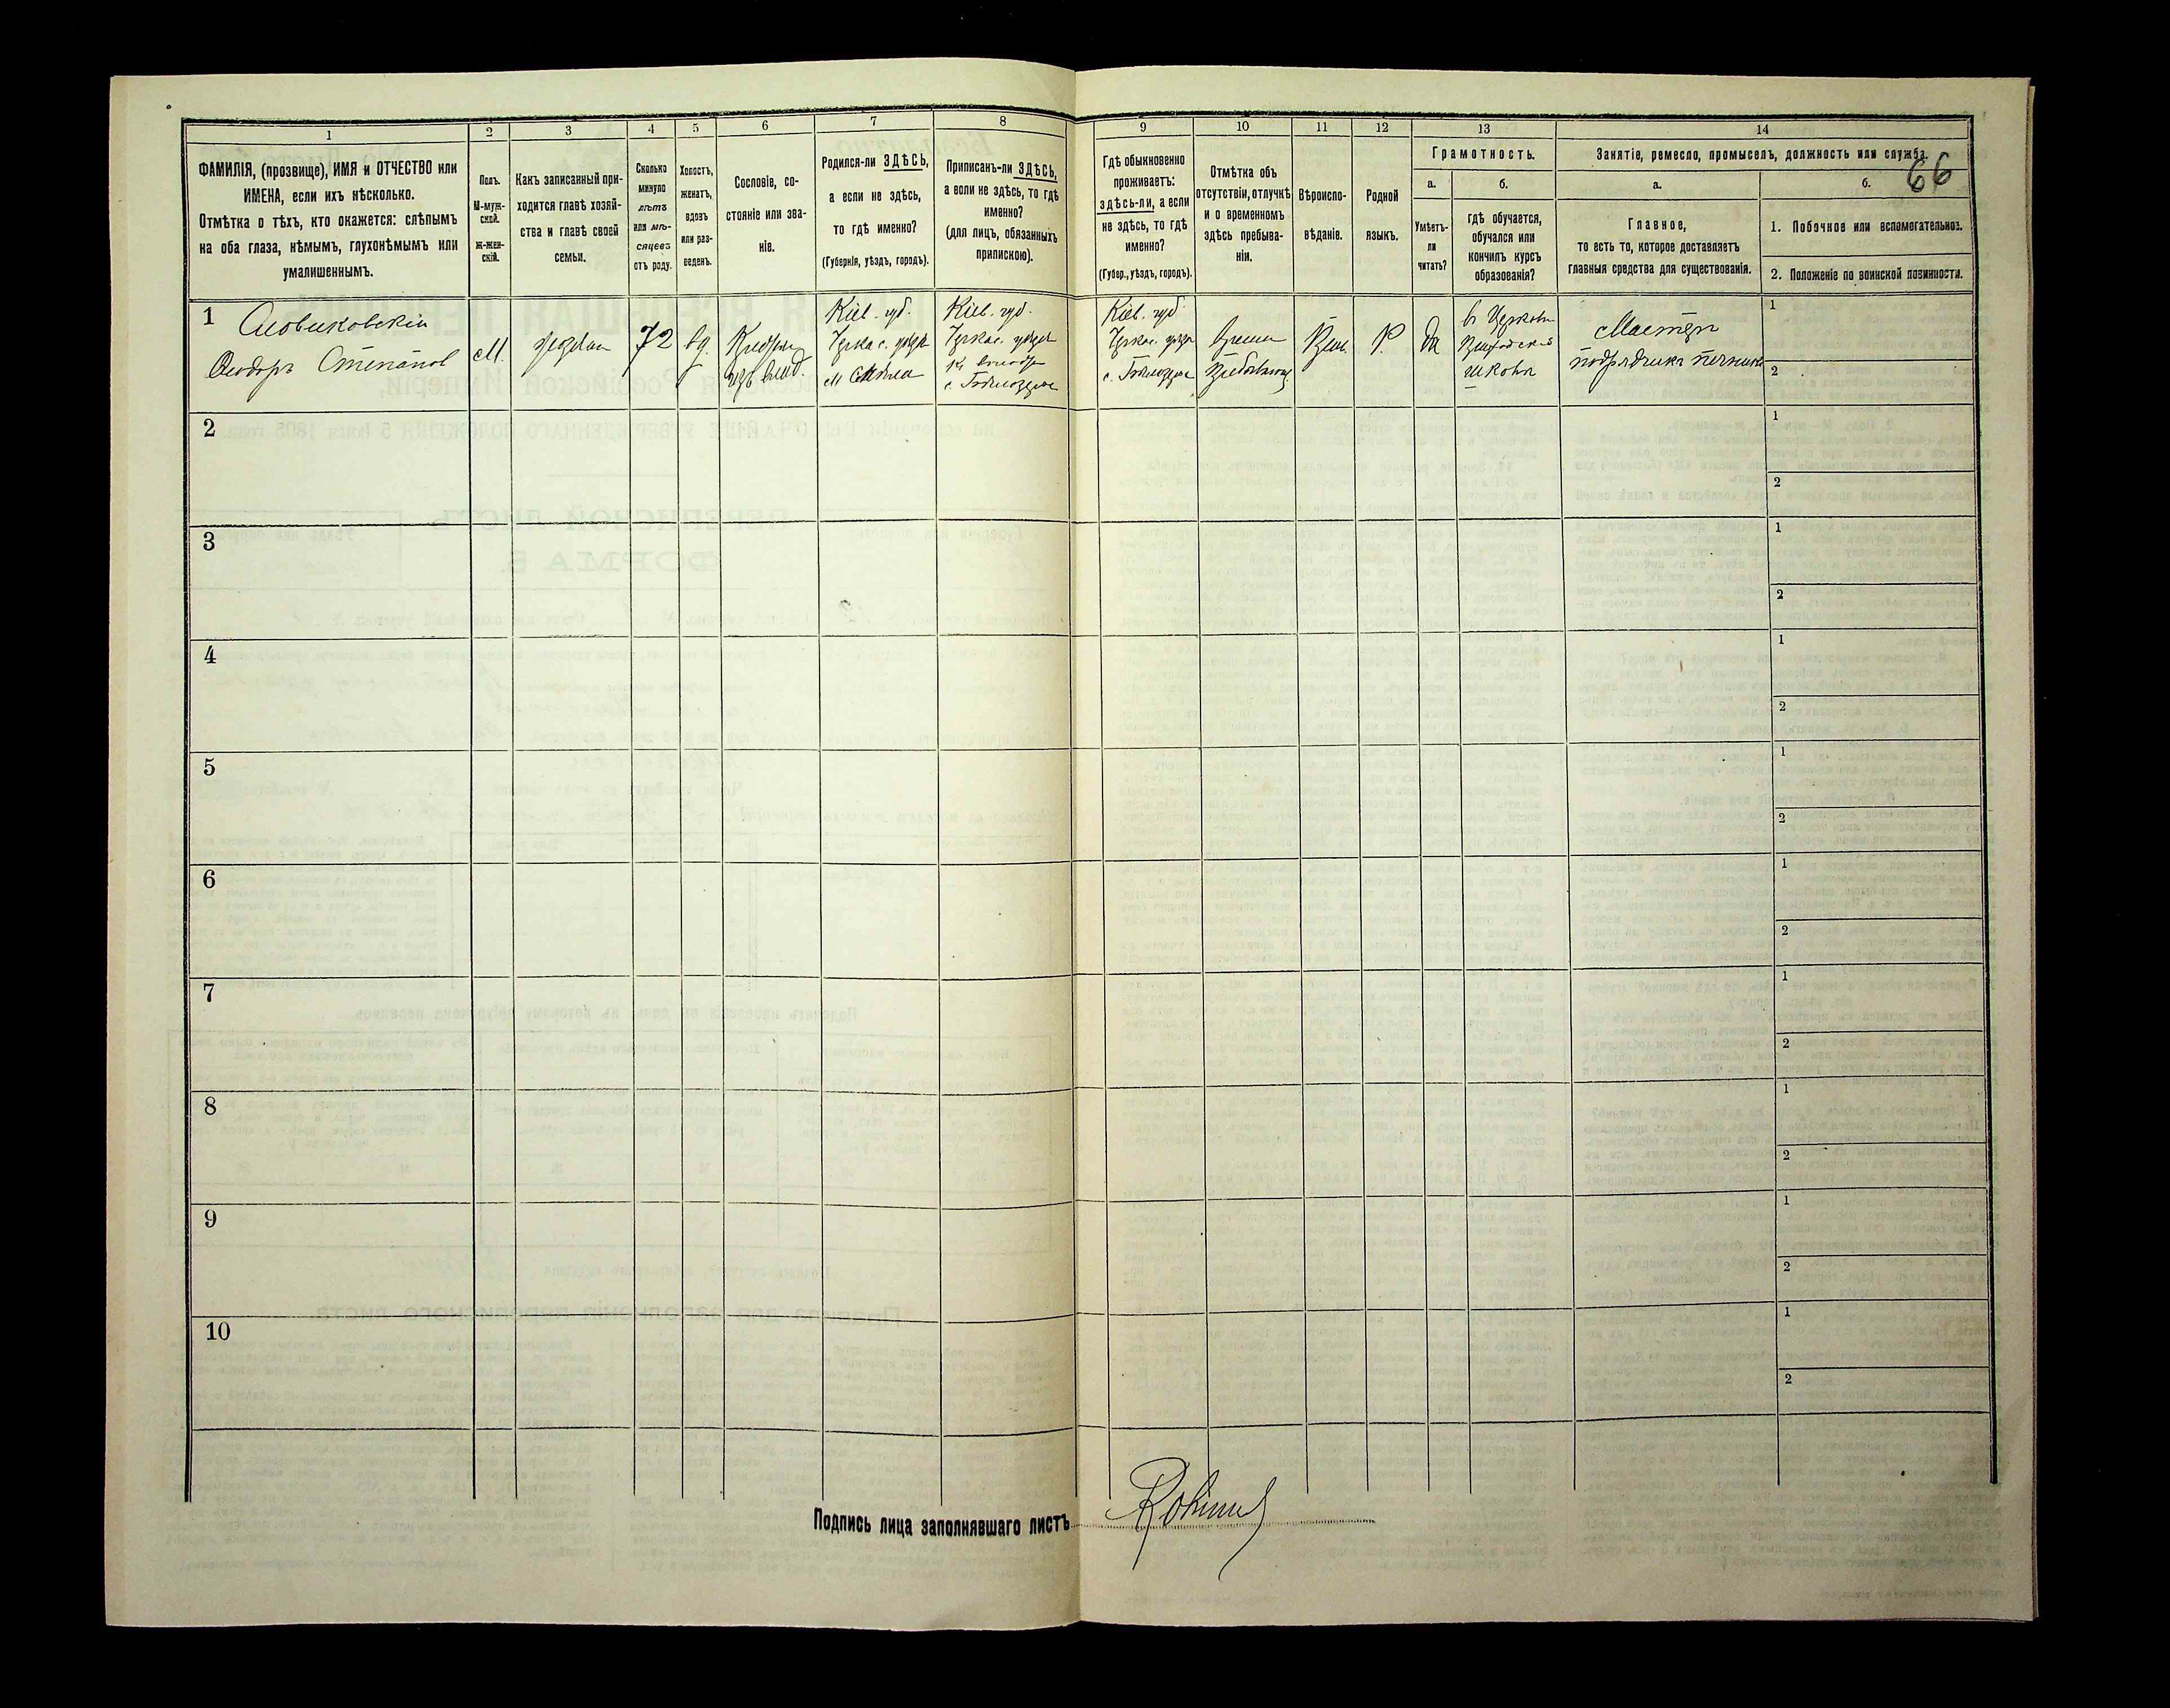 1 2 3 4 5 6 7 8 9 10 11 12 13 14
66
ФАМИЛІЯ, (прозвище), ИМЯ и ОТЧЕСТВО или
ИМЕНА, если ихъ нѣсколько.
Отмѣтка о тѣхъ, кто окажется: слѣпымъ
на оба глаза, нѣмымъ, глухонѣмымъ или
умалишеннымъ.
Полъ.
М-муж-
ской.
Ж-жен-
скій.
Какъ записанный при-
ходится главѣ хозяй-
ства и главѣ своей
семьи.
Сколько
минуло
лѣтъ
или мѣ-
сяцевъ
отъ роду.
Холостъ,
женатъ,
вдовъ
или раз-
веденъ.
Сословіе, со-
стояніе или зва-
ніе.
Родился-ли ЗДѢСЬ,
а если не здѣсь,
то гдѣ именно?
(Губернія, уѣздъ, городъ).
Приписанъ-ли ЗДѢСЬ,
а если не здѣсь, то гдѣ
именно?
(для лицъ, обязанныхъ
припискою).
Гдѣ обыкновенно
проживаетъ:
здѣсь-ли, а если
не здѣсь, то гдѣ
именно?
(Губер., уѣздъ, городъ).
Отмѣтка объ
отсутствіи, отлучкѣ
и о временномъ
здѣсь пребыва-
ніи.
Вѣроиспо-
вѣданіе.
Родной
языкъ.
Грамотность.
а.
Умѣетъ-
ли
читать?
б.
гдѣ обучается,
обучался или
кончилъ курсъ
образованія?
Занятіе, ремесло, промыселъ, должность или служба.
а.
Главное,
то есть то, которое доставляетъ
главныя средства для существованія.
б.
1. Побочное или вспомогательное.
2. Положеніе по воинской повинности.
1
Ѳеодоръ Степановъ
М.
72
вд.
Кіев. губ.
Кіев. губ.
Кіев. губ.
Р.
Да
Мастеръ
подрядчикъ печникъ
1
2
2
1
2
3
1
2
4
1
2
5
1
2
6
1
2
7
1
2
8
1
2
9
1
2
10
1
2
Подпись лица заполнявшаго листъ